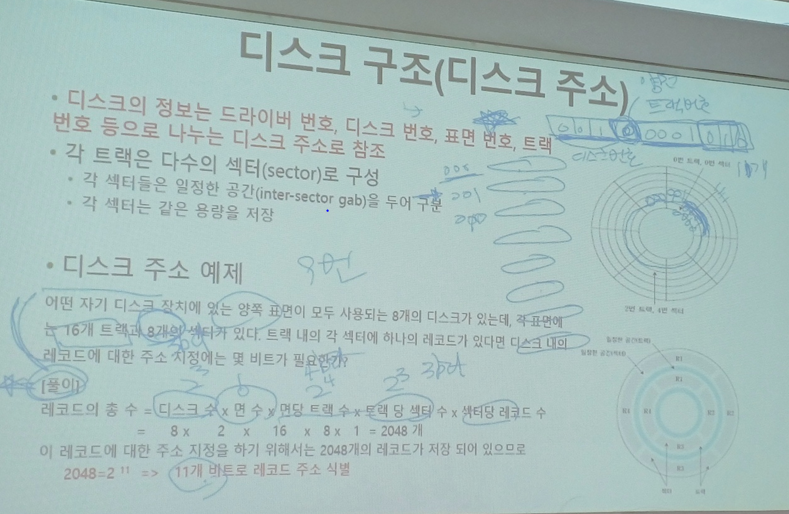 디스크 구조(디스크 주소)
• 디스크의 정보는 드라이버 번호, 디스크 번호, 표면 번호, 트랙
번호 등으로 나누는 디스크 주소로 참조
• 각 트랙은 다수의 섹터(sector)로 구성
• 각 섹터들은 일정한 공간(inter-sector gab)을 두어 구분
• 각 섹터는 같은 용량을 저장
트랙번호
디스크번호
001
• 디스크 주소 예제
어떤 자기 디스크 장치에 있는 양쪽 표면이 모두 사용되는 8개의 디스크가 있는데, 각 표면에
는 16개 트랙과 8개의 섹터가 있다. 트랙 내의 각 섹터에 하나의 레코드가 있다면 디스크 내의
레코드에 대한 주소 지정에는 몇 비트가 필요한가?
[풀이]
레코드의 총 수 = 디스크 수 x 면 수 x 면당 트랙 수 x 트랙 당 섹터 수 x 섹터당 레코드 수
= 8 x 2 x 16 x 8 x 1 = 2048 개
이 레코드에 대한 주소 지정을 하기 위해서는 2048개의 레코드가 저장 되어 있으므로
2048=2 11 => 11개 비트로 레코드 주소 식별
섹터
트랙